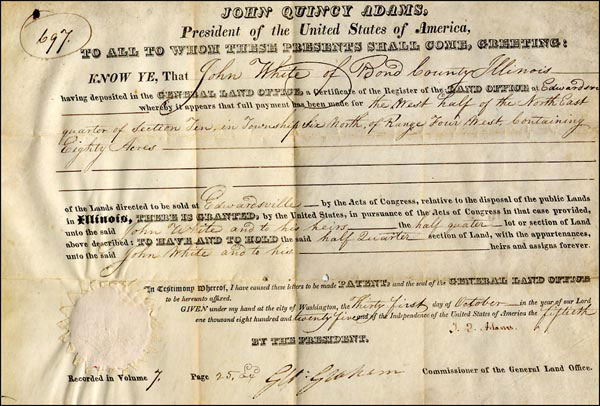 JOHN QUINCY ADAMS,
697.
President of the United States of America,
TO ALL TO WHOM THESE PRESENTS SHALL COME, GREETING:
KNOW YE, That John White of Bond County Illinois
having deposited in the GENERAL LAND OFFICE, a Certificate of the Register of the LAND OFFICE at Edwardsv
whereby it appears that full payment has been made for the West half of the North East
quarter of Section Ten, in Township Six North, of Range Four West, Containing
Eighty Acres
of the Lands directed to be sold at Edwardsville by the Acts of Congress, relative to the disposal of the public Lands
in Illinois, THERE IS GRANTED, by the United States, in pursuance of the Acts of Congress in that case provided,
unto the said John White and to his heirs the half quater lot or section of Land
above described: TO HAVE AND TO HOLD the said half Quarter section of Land, with the appurtenances,
unto the said John White and to his heirs and assigns forever.
In Testimony Whereof, I have caused these letters to be made PATENT, and the seal of the GENERAL LAND OFFICE
to be hereunto affixed.
GIVEN under my hand at the city of Washington, the Thirty first day of October in the year of our Lord
one thousand eight hundred and twenty five and of the Independence of the United States of America the fiftieth
J. Q. Adams.
BY THE PRESIDENT.
Recorded in Volume 7. Page 25. Ed Go: Graham Commissioner of the General Land Office.